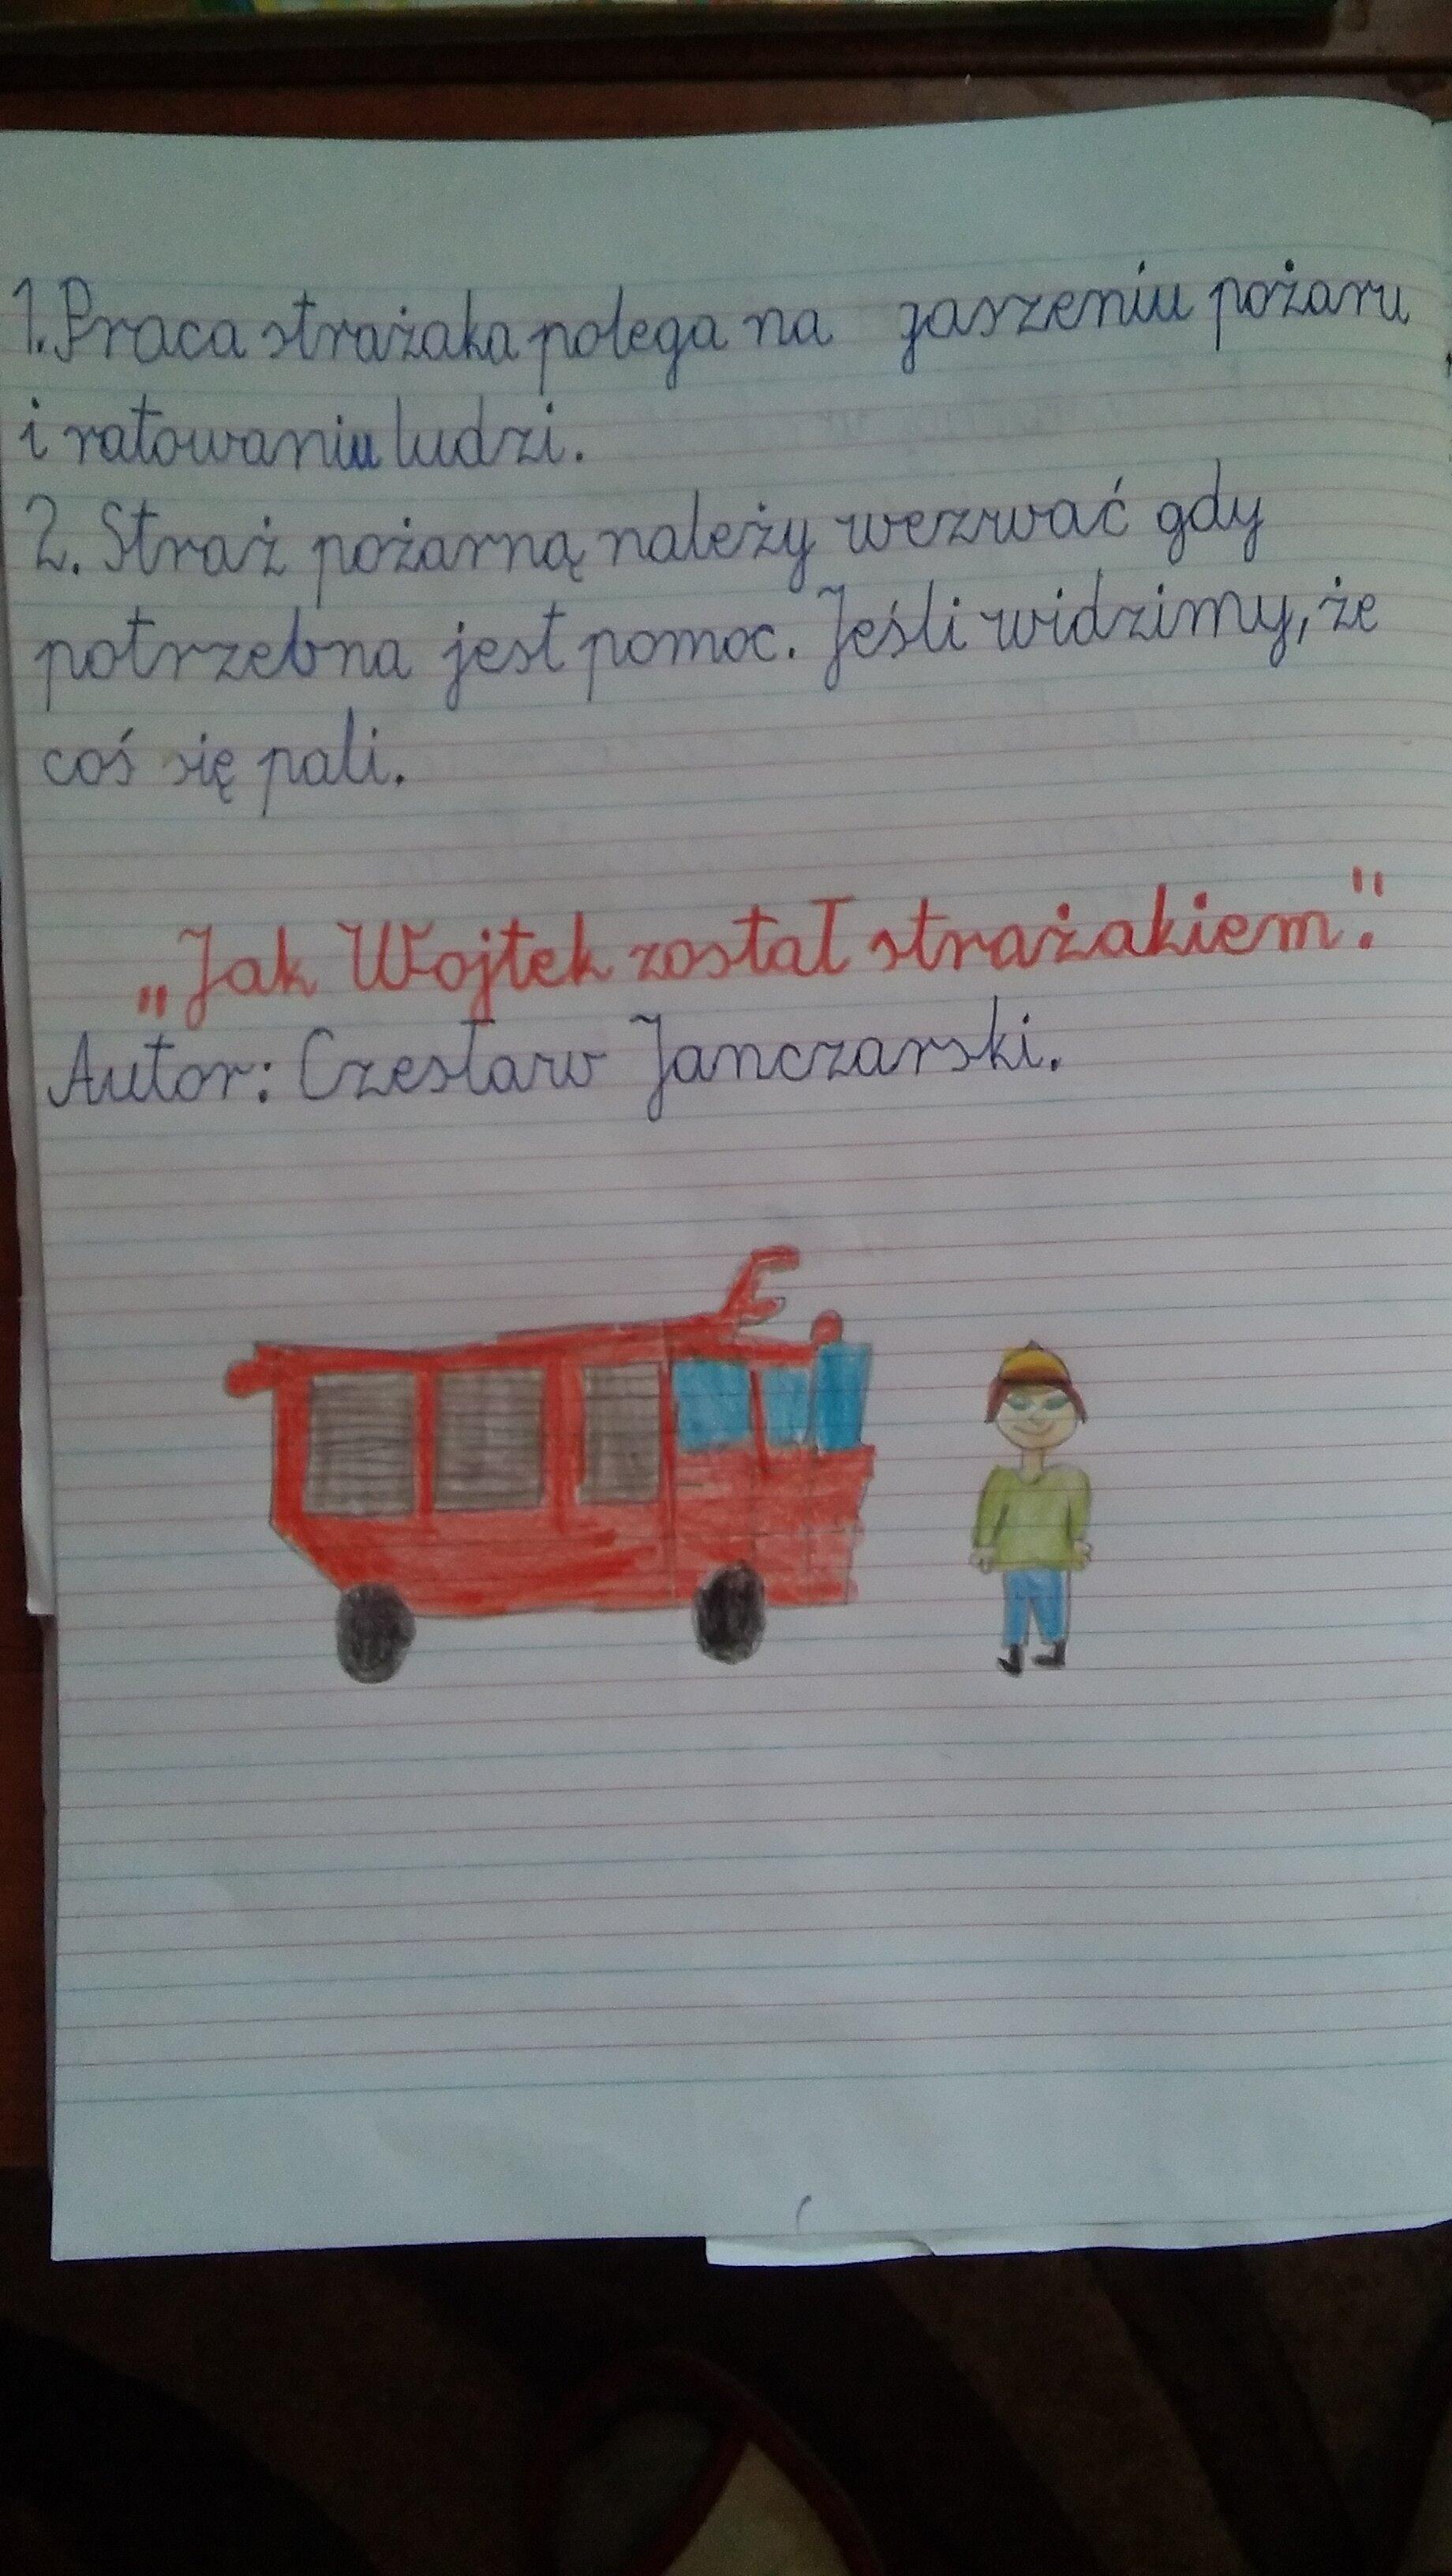 1. Praca strażaka polega na gaszeniu pożaru
i ratowaniu ludzi.
2. Straż pożarną należy wezwać gdy
potrzebna jest pomoc. Jeśli widzimy, że
coś się pali.
„Jak Wojtek został strażakiem”.
Autor: Czesław Janczarski.